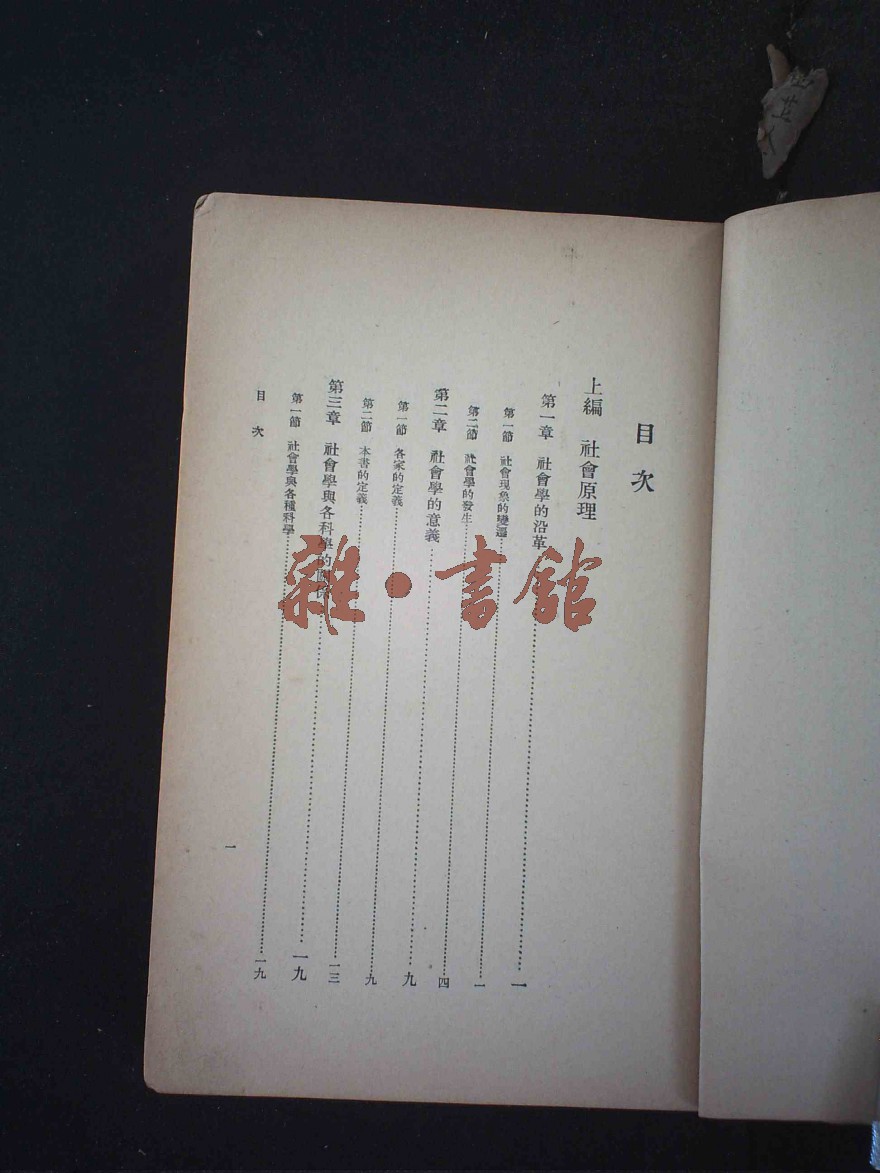 目次
上編 社會原理
第一章 社會學的沿革……一
第一節 社會現象的變遷……一
第二節 社會學的發生……四
第二章 社會學的意義……九
第一節 各家的定義……九
第二節 本書的定義……一三
第三章 社會學與各科學的關係……一九
第一節 社會學與各種科學……一九
目次
一
雜·書館